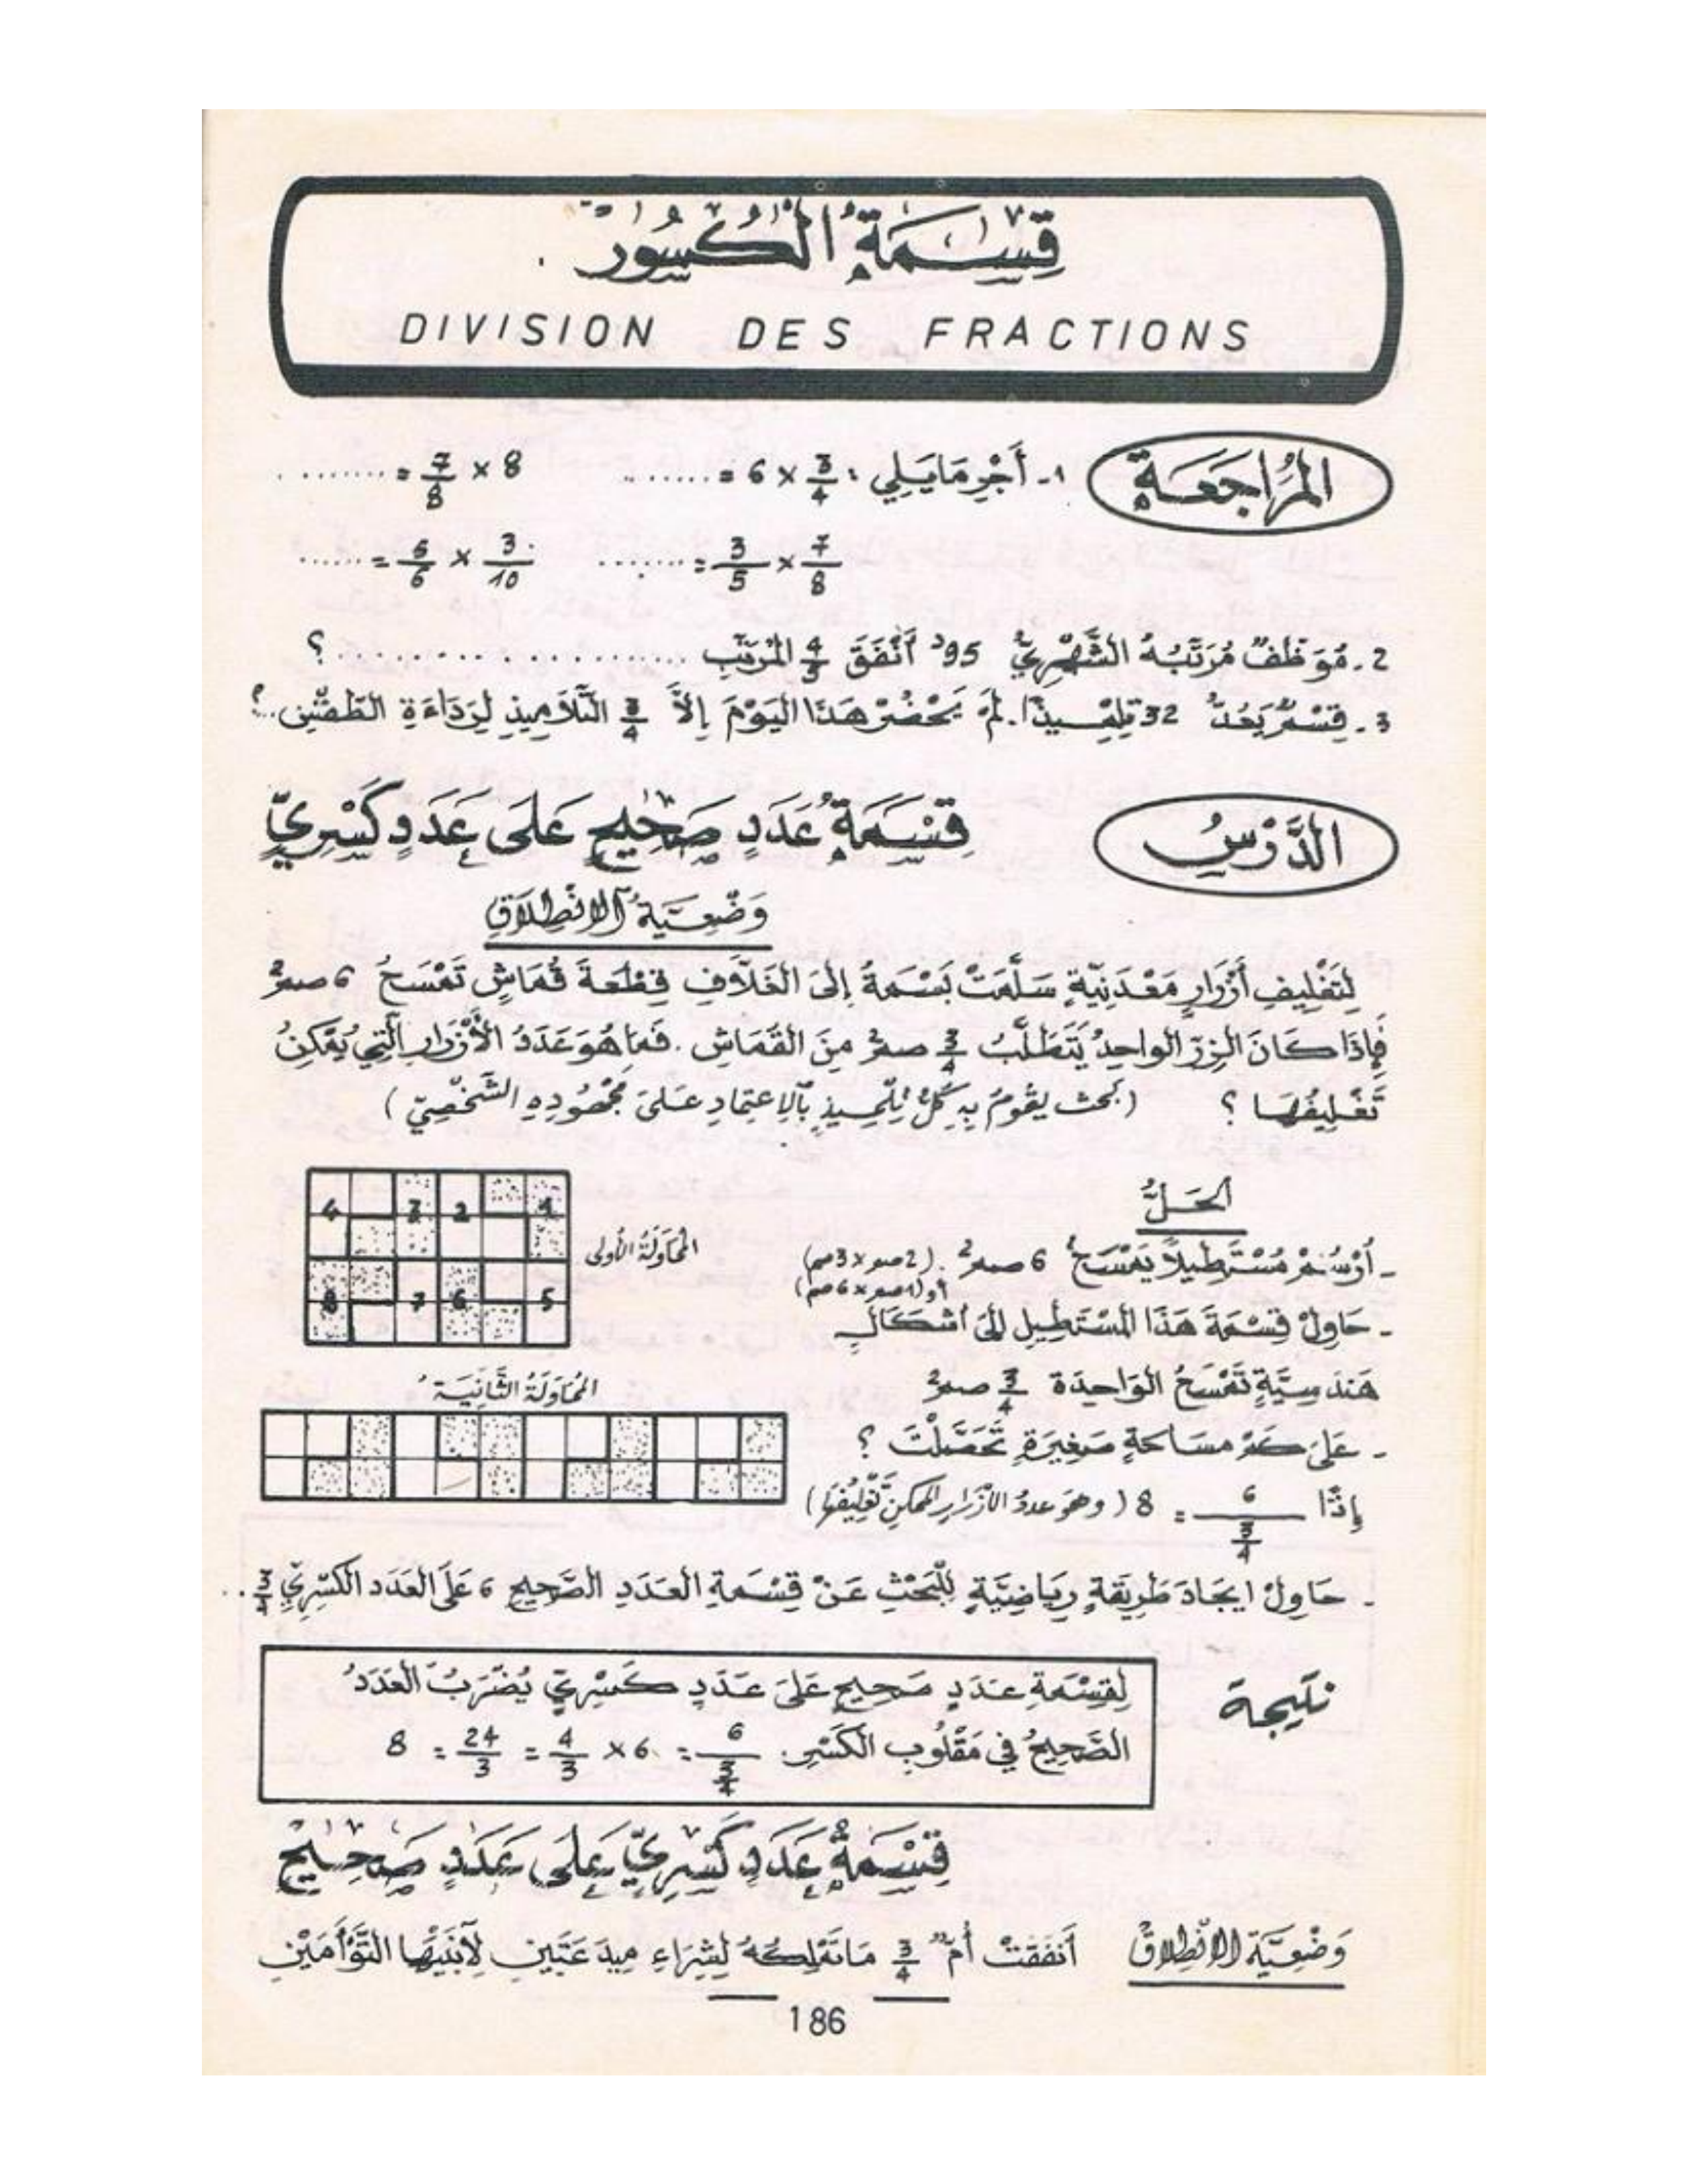 قِسْمَةُ الْكُسُور
DIVISION DES FRACTIONS
المُرَاجَعَة
1 - أَجْرِ مَا يَلِي : 3/4 × 6 = ........ 8 × 7/8 = ........
7/8 × 3/5 = ........ 3/10 × 5/6 = ......
2 - مُوَظَّفٌ مُرَتَّبُهُ الشَّهْرِيُّ 95د أَنْفَقَ 4/5 المُرَتَّبِ .................... ؟
3 - قِسْمٌ يَعُدُّ 32 تِلْمِيذًا. لَمْ يَحْضُرْ هَذَا اليَوْمَ إِلاَّ 3/4 التَّلاَمِيذِ لِرَدَاءَةِ الطَّقْسِ ..؟
الدَّرْسُ
قِسْمَةُ عَدَدٍ صَحِيحٍ عَلَى عَدَدٍ كَسْرِيٍّ
وَضْعِيَّةُ الاِنْطِلاَقِ
لِتَغْلِيفِ أَزْرَارٍ مَعْدَنِيَّةٍ سَلَّمَتْ بَسْمَةُ إِلَى الغَلاَّفِ قِطْعَةَ قُمَاشٍ تَمْسَحُ 6 صم²
فَإِذَا كَانَ الزِرّ الواحِدُ يَتَطَلَّبُ 3/4 صم² مِنَ القُمَاشِ . فَمَا هُوَ عَدَدُ الأَزْرَارِ الَّتِي يُمْكِنُ
تَغْلِيفُهَا ؟ (بحث يَقُومُ بِهِ كُلُّ تِلْمِيذٍ بِالاِعْتِمَادِ عَلَى مَجْهُودِهِ الشَّخْصِيّ )
الحَلُّ
- أُرْسُمْ مُسْتَطِيلاً يَمْسَحُ 6 صم² . (2صم × 3صم)
أو (1صم × 6صم)
- حَاوِلْ قِسْمَةَ هَذَا المُسْتَطِيلِ إِلَى أَشْكَالٍ
هَنْدَسِيَّةٍ تَمْسَحُ الوَاحِدَة 3/4 صم²
- عَلَى كَمْ مسَاحَةٍ صَغِيرَةٍ تَحَصَّلْتَ ؟
إِذًا 6/(3/4) = 8 (وهُوَ عددُ الأَزْرَارِ المُمْكِنِ تَغْلِيفُهَا)
4 3 2 1
8 7 6 5
المُحَاوَلَةُ الأُولَى
المُحَاوَلَةُ الثَّانِيَة
- حَاوِلْ ايجَادَ طَرِيقَةٍ رِيَاضِيَّةٍ لِلْبَحْثِ عَنْ قِسْمَةِ العَدَدِ الصَّحِيحِ 6 عَلَى العَدَدِ الكَسْرِيِّ 3/4 ..
نتيجة
لِقِسْمَةِ عَدَدٍ صَحِيحٍ عَلَى عَدَدٍ كَسْرِيٍّ يُضْرَبُ العَدَدُ
الصَّحِيحُ فِي مَقْلُوبِ الكَسْرِ. 6/(3/4) = 6 × 4/3 = 24/3 = 8
قِسْمَةُ عَدَدٍ كَسْرِيٍّ عَلَى عَدَدٍ صَحِيحٍ
وَضْعِيَّة الاِنْطِلاَق أَنْفَقَتْ أُمٌّ 3/4 مَا تَمْلِكُهُ لِشِرَاءِ مِيدَعَتَيْنِ لاِبْنَيْهَا التَّوْأَمَيْنِ
186